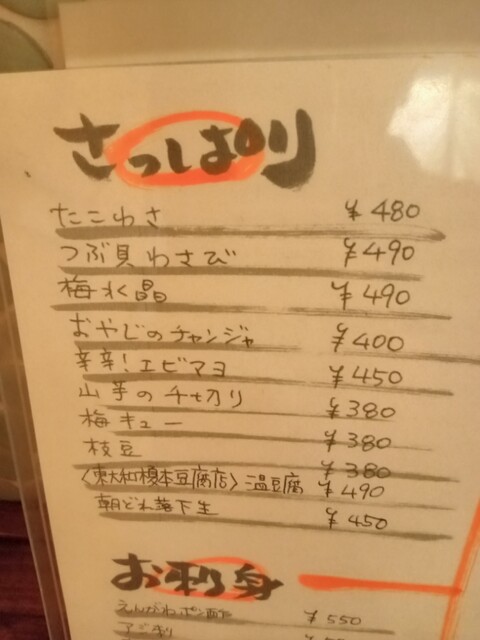 さっぱり
たこわさ ¥480
つぶ貝わさび ¥490
梅水晶 ¥490
おやじのチャンジャ ¥400
辛辛!エビマヨ ¥450
山芋の千切り ¥380
梅キュー ¥380
枝豆 ¥380
〈東大和榎本豆腐店〉温豆腐 ¥490
朝どれ落下生 ¥450
お刺身
えんがわポン酢 ¥550
アジ刺